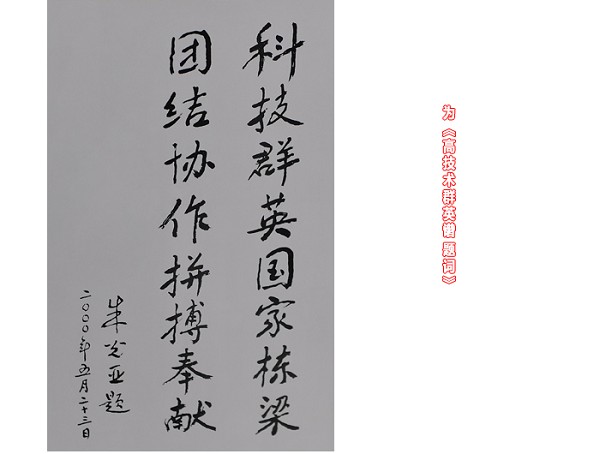 科技群英国家栋梁
团结协作拼搏奉献
朱光亚题
二〇〇〇年五月二十三日
为《高技术群英谱题词》